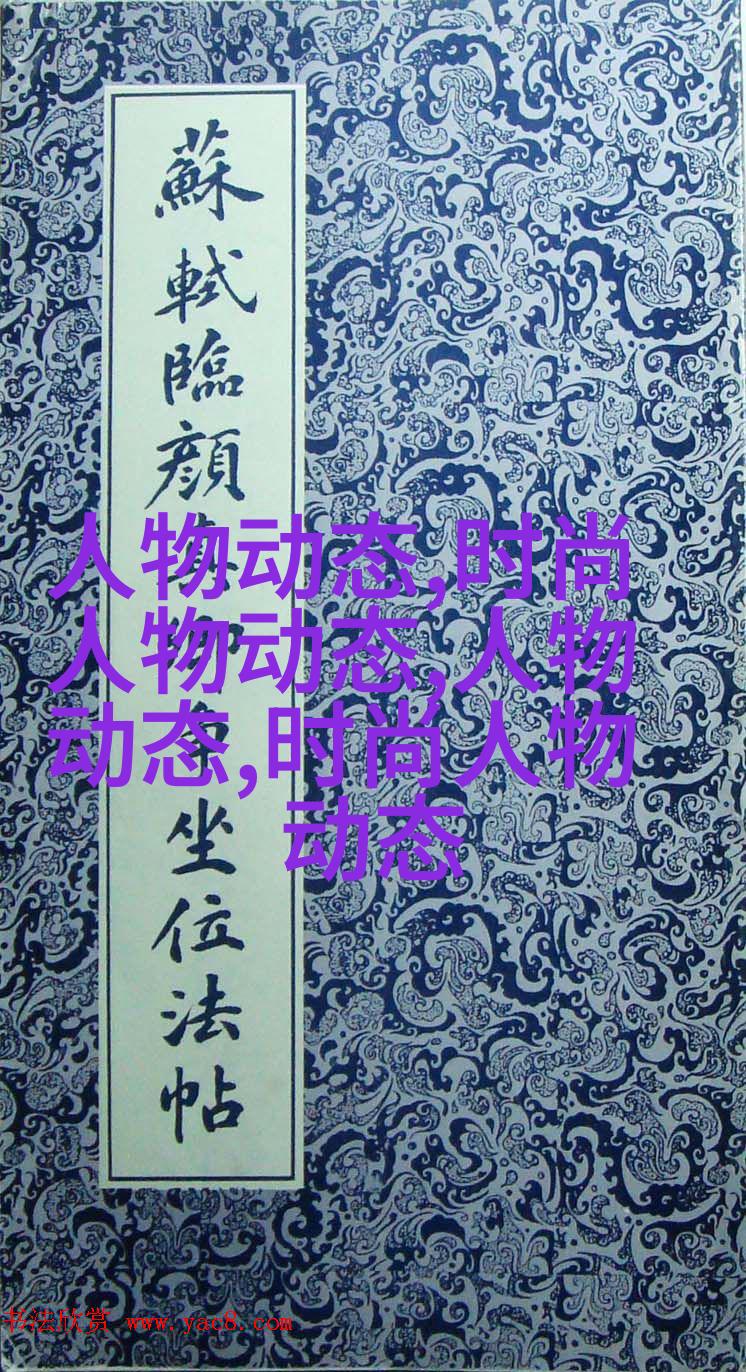 蘇軾臨顔真卿争坐位法帖
人物动态,时尚
人物动态,人物
动态,时尚人物
动态
书法欣赏 www.yac8.com